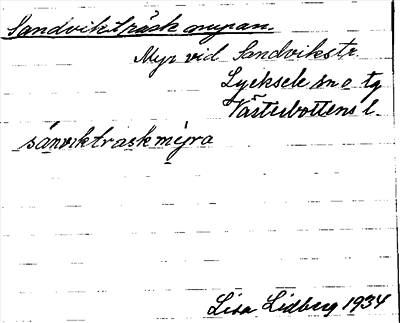 Sandviksträskmyran.
Myr vid Sandvikstr.
Lycksele sn o tg
Västerbottens l.
sanviktraskmyra
Lisa Lidberg 1934